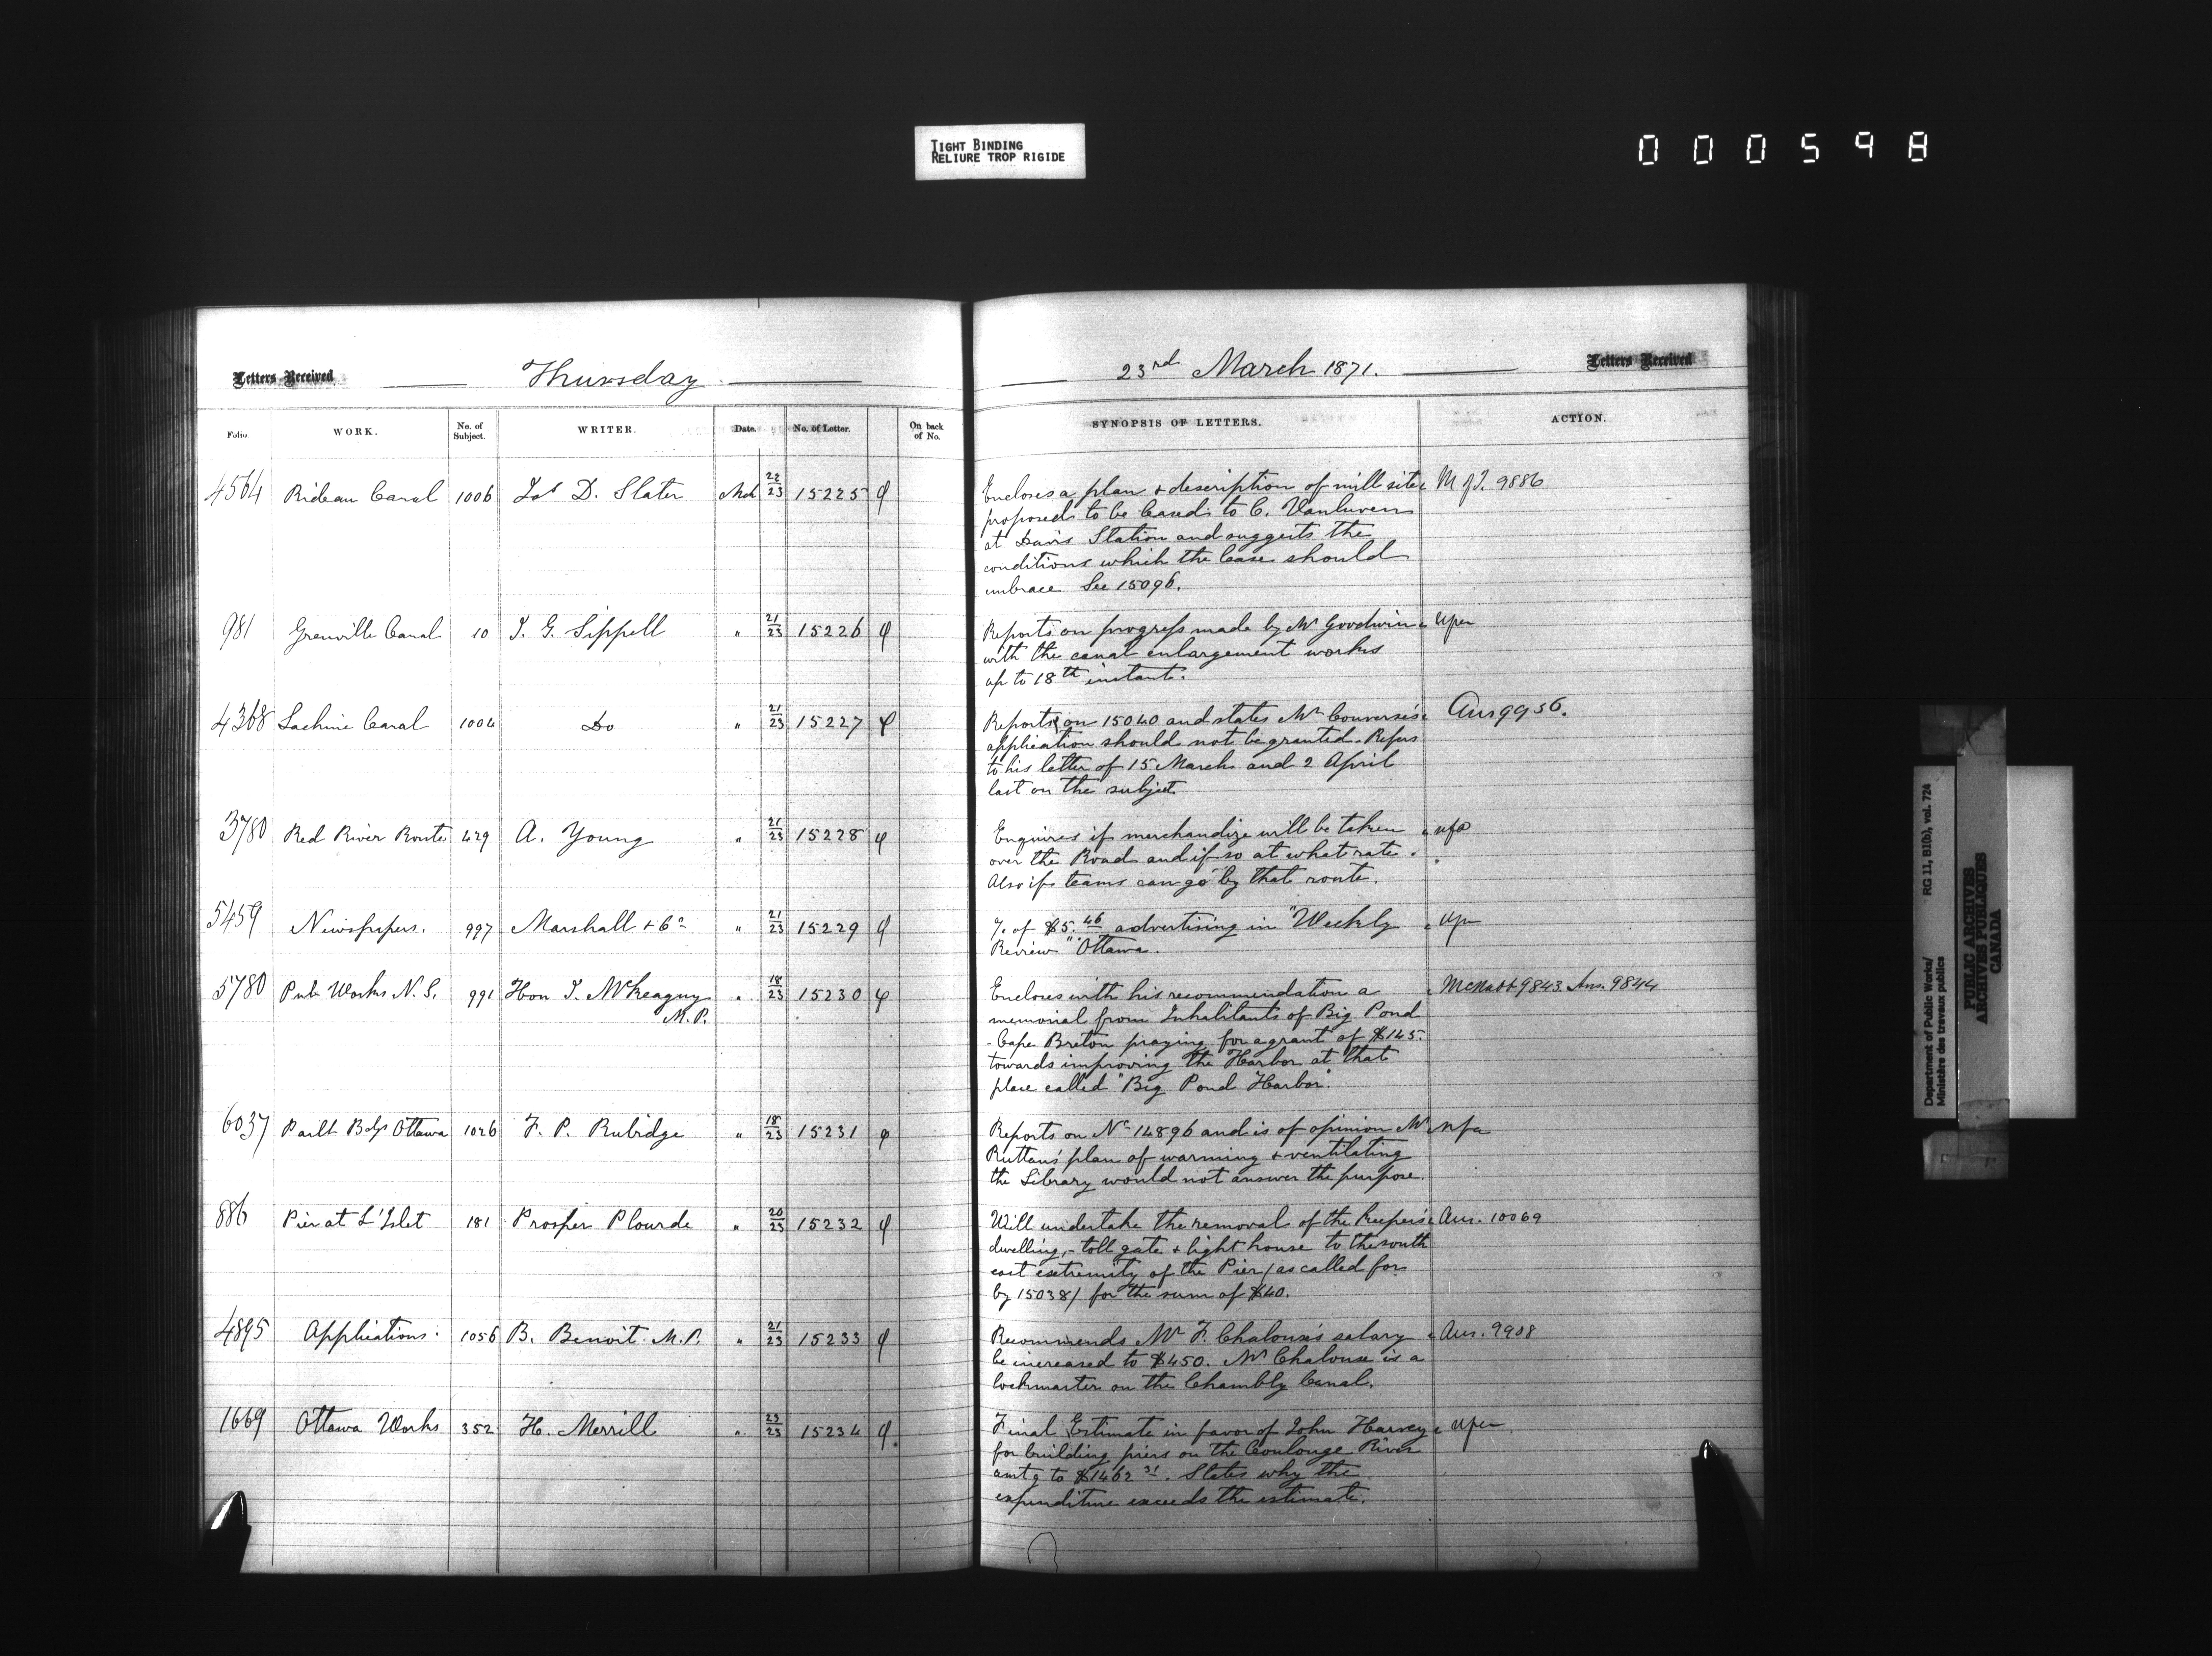 TIGHT BINDING
RELIURE TROP RIGIDE
000598
Letters Received
Thursday
23rd March 1871.
Letters Received
Folio. WORK. No. of Subject. WRITER. Date. No. of Letter. On back of No. SYNOPSIS OF LETTERS. ACTION.
4564 Rideau Canal 1006 Jas D. Slater Mch 22/23 15225
Encloses a plan + description of mill site
proposed to be leased to C. Vanluven
at Davis Station and suggests the
conditions which the lease should
embrace See 15096.
9886
981 Grenville Canal 10 J. G. Sippell " 21/23 15226
Reports on progress made by Mr Goodwin
with the canal enlargement works
up to 18th instant.
4368 Lachine Canal 1004 Do " 21/23 15227
Reports on 15040 and states Mr Converse's
application should not be granted. Refers
to his letter of 15 March and 2 April
last on the subject
Ans 9956.
3780 Red River Route 429 A. Young " 21/23 15228
Enquires if merchandize will be taken
over the Road and if so at what rate.
Also if teams can go by that route.
nfa
5459 Newspapers. 997 Marshall + Co " 21/23 15229
of $5.46 advertising in "Weekly
Review" Ottawa.
5780 Pub Works N.S. 991 Hon J. McKeagney " 18/23 15230
M.P.
Encloses with his recommendation a
memorial from Inhabitants of Big Pond
- Cape Breton praying for a grant of $145.
towards improving the Harbor at that
place called "Big Pond Harbor".
McNabb 9843. Ans. 9844
6037 Parlt Bdgs Ottawa 1026 F. P. Rubidge " 18/23 15231
Reports on No 14896 and is of opinion Mr
Ruttan's plan of warming + ventilating
the Library would not answer the purpose.
nfa
886 Pier at L'Islet 181 Prosper Plourde " 20/23 15232
Will undertake the removal of the Keeper's
dwelling, - toll gate + light house to the south
east extremity of the Pier (as called for
by 15038) for the sum of $40.
Ans. 10069
4895 Applications. 1056 B. Benoit M.P. " 21/23 15233
Recommends Mr F. Chalouse's salary
be increased to $450. Mr Chalouse is a
lockmaster on the Chambly Canal.
Ans. 9908
1669 Ottawa Works 352 H. Merrill " 23/23 15234
Final Estimate in favor of John Harvey
for building piers on the Coulonge River
amtg to $1462 31. States why the
expenditure exceeds the estimate.
Department of Public Works/ RG 11, B1(b), vol. 724
Ministère des travaux publics
PUBLIC ARCHIVES
ARCHIVES PUBLIQUES
CANADA